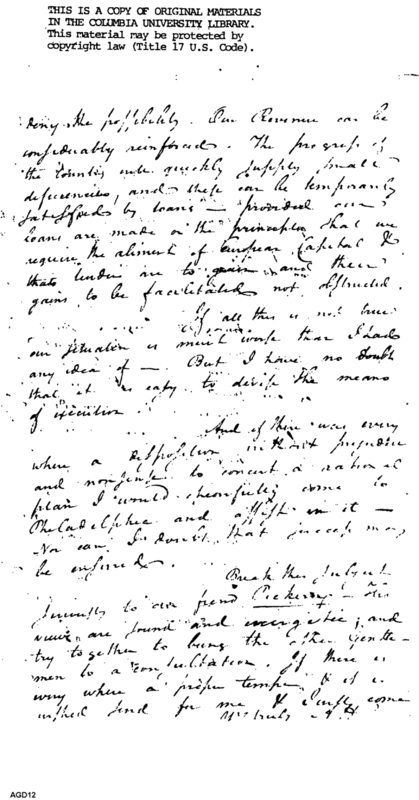 THIS IS A COPY OF ORIGINAL MATERIALS
IN THE COLUMBIA UNIVERSITY LIBRARY.
This material may be protected by
copyright law (Title 17 U.S. Code).
deny the possibility. Our Revenue can be
considerably reinforced. The progress of
the Country will quickly supply small
deficiencies, and these can be temporarily
satisfied by loans — provided our
loans are made on the principle that we
require the aliment of European Capital &
that lenders are to gain and their
gains to be facilitated not obstructed.
If all this is not true
our situation is much worse than I had
any idea of — But I have no doubt
that it is easy to devise the means
of execution.
And if there was every
where a disposition without prejudice
and nonsense to concert a rational
plan I would cheerfully come to
Philadelphia and assist in it —
Nor can I doubt that success may
be ensured.
Break this subject
to our friend Pickering — His
views are sound and energetic; and
try together to bring the other Gentle
men to a consultation. If there is
every where a proper temper & it is
wished send for me & I will come
Yrs truly A H
AGD12